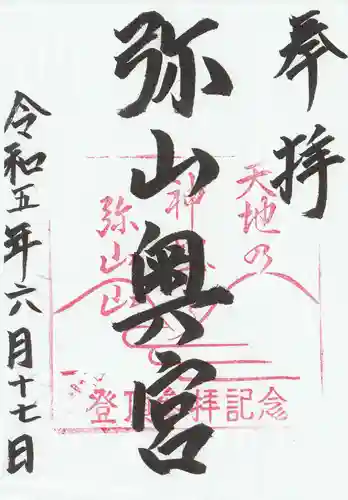 奉拝
弥山奥宮
令和五年六月十七日
天地乃
神
弥山
登頂参拝記念